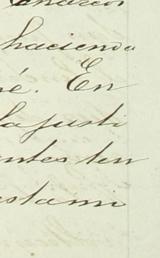 hacienda
né. En
la justi
entes ten
estami